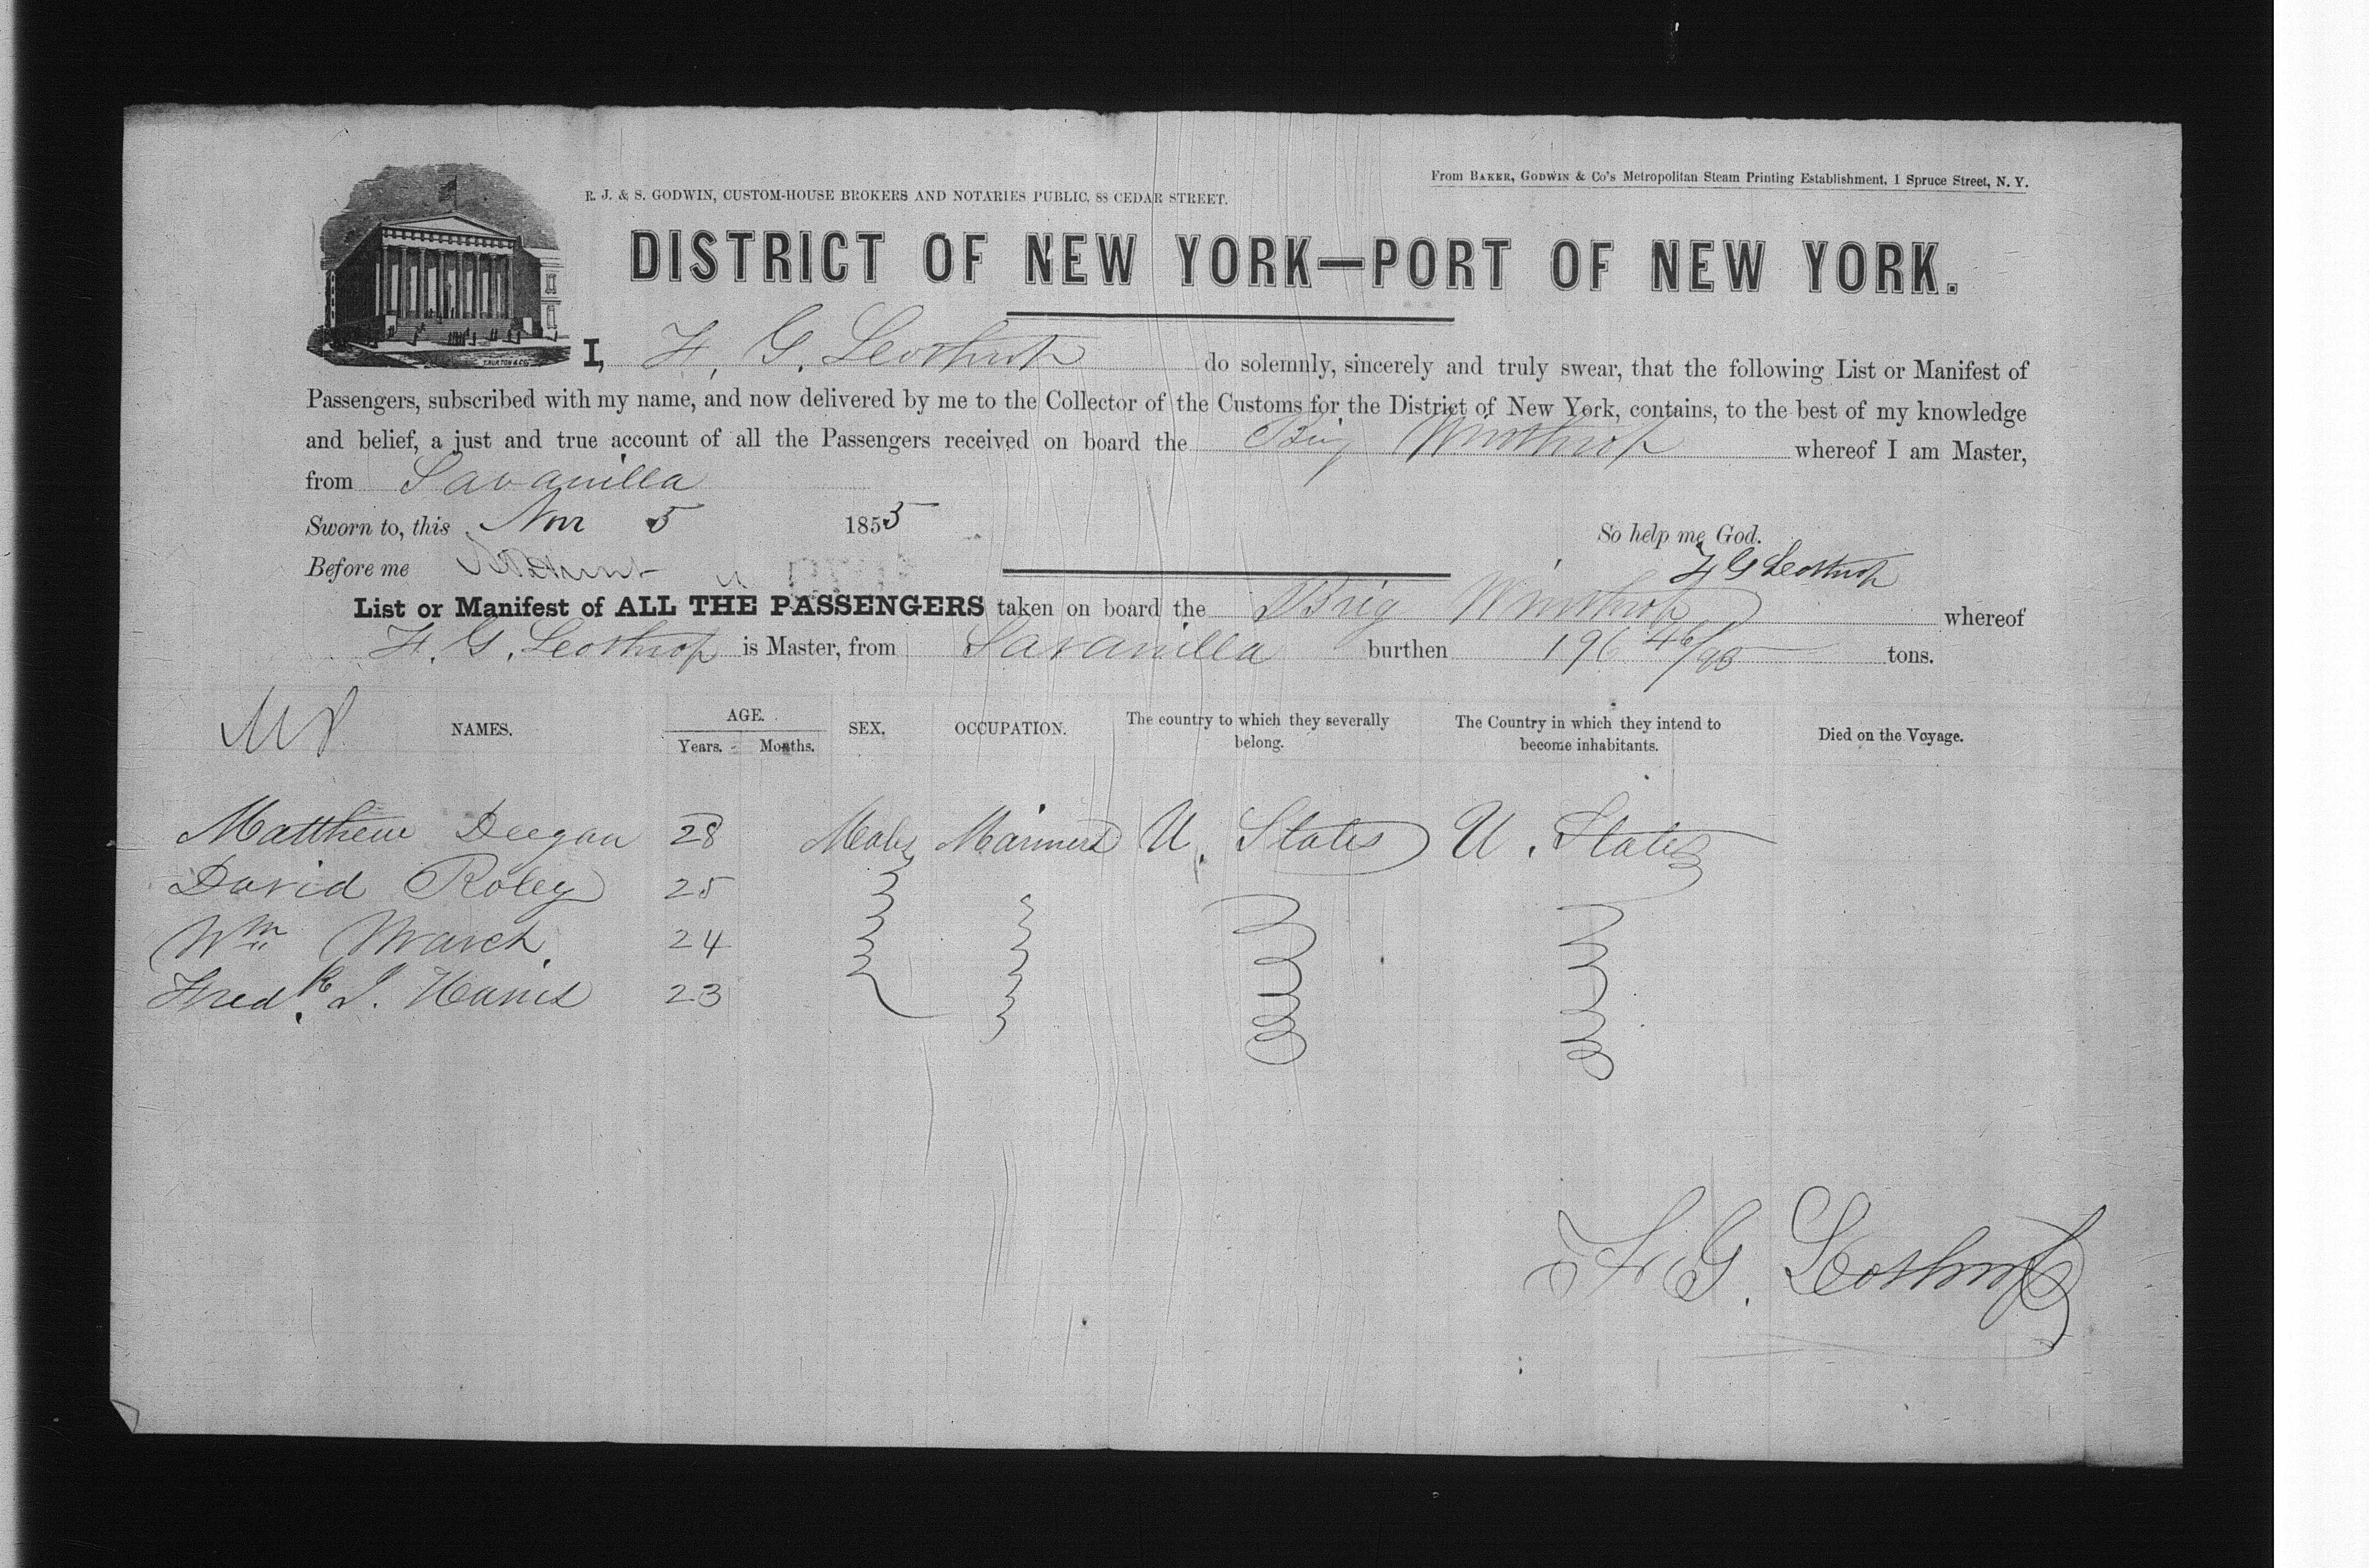 R. J. & S. GODWIN, CUSTOM-HOUSE BROKERS AND NOTARIES PUBLIC, 88 CEDAR STREET.
From BAKER, GODWIN & Co's Metropolitan Steam Printing Establishment, 1 Spruce Street, N. Y.
DISTRICT OF NEW YORK—PORT OF NEW YORK.
I, F. G. Leosthrop do solemnly, sincerely and truly swear, that the following List or Manifest of
Passengers, subscribed with my name, and now delivered by me to the Collector of the Customs for the District of New York, contains, to the best of my knowledge
and belief, a just and true account of all the Passengers received on board the Brig Winthrop whereof I am Master,
from Savanilla
Sworn to, this Nov 5 1855 So help me God.
Before me F G Leosthrop
List or Manifest of ALL THE PASSENGERS taken on board the Brig Winthrop whereof
F. G. Leosthrop is Master, from Savanilla burthen 196 46/95 tons.
NAMES. AGE. Years. Months. SEX. OCCUPATION. The country to which they severally belong. The Country in which they intend to become inhabitants. Died on the Voyage.
Matthew Deegan 28 Males Mariners U. States U. States
David Roley 25
Wm March. 24
Fredk. J. Harris 23
F. G. Leosthrop